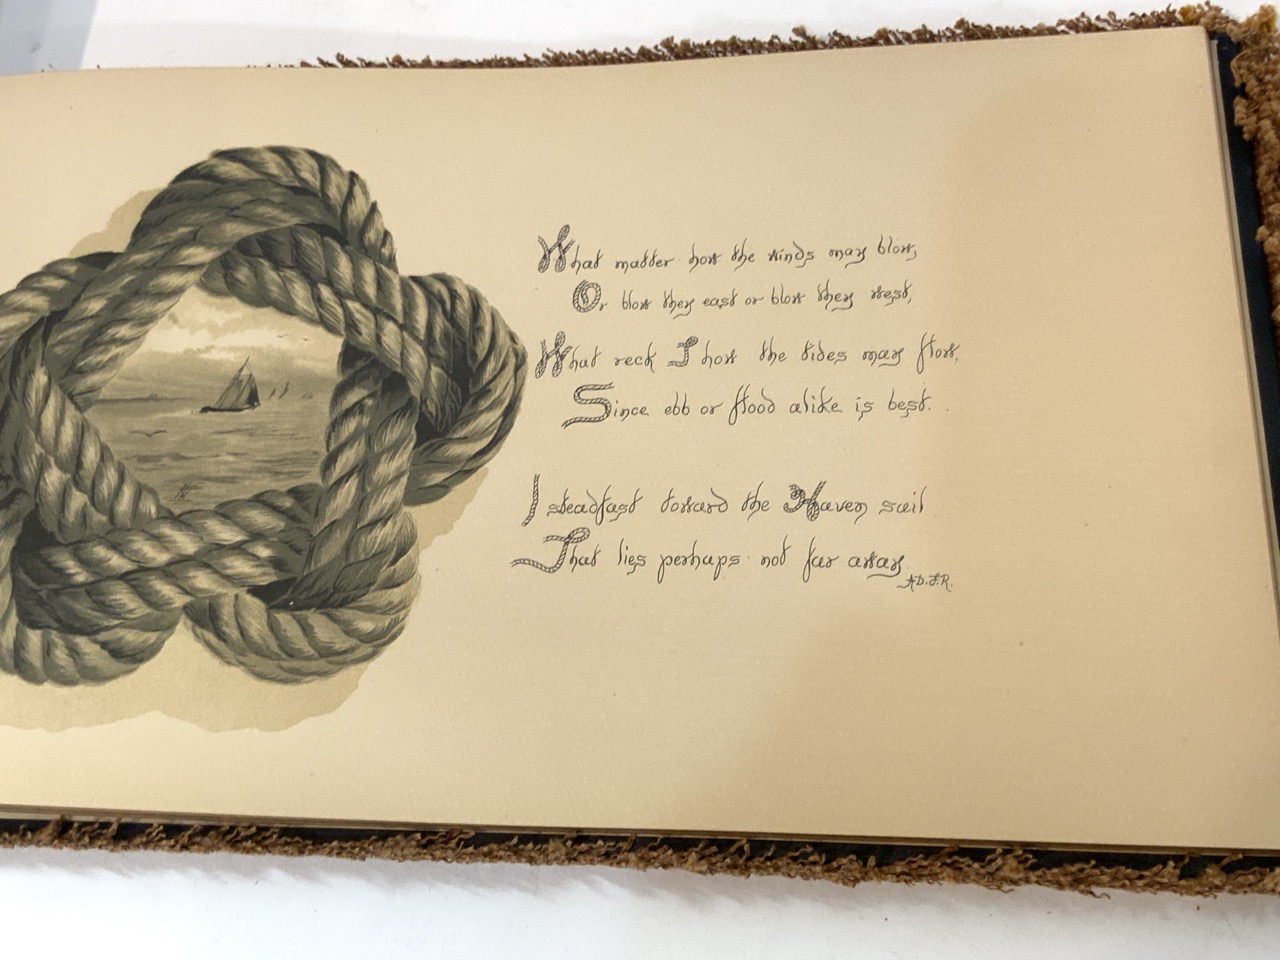 What matter how the winds may blow,
Or blow they east or blow they west,
What reck I how the tides may flow,
Since ebb or flood alike is best.
I steadfast toward the Haven sail
That lies perhaps not far away
A.D.F.R.